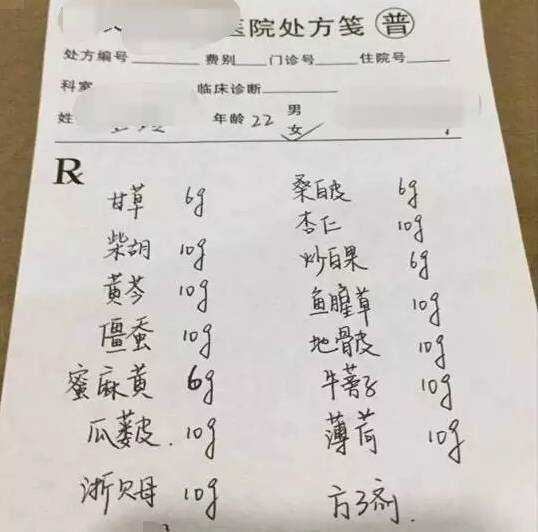 医院处方笺 普
处方编号 费别 门诊号 住院号
科室 临床诊断
姓 年龄 22 男 女
R
甘草 6g 桑白皮 6g
柴胡 10g 杏仁 10g
黄芩 10g 炒白果 6g
僵蚕 10g 鱼腥草 10g
蜜麻黄 6g 地骨皮 10g
瓜蒌皮 10g 牛蒡子 10g
浙贝母 10g 薄荷 10g